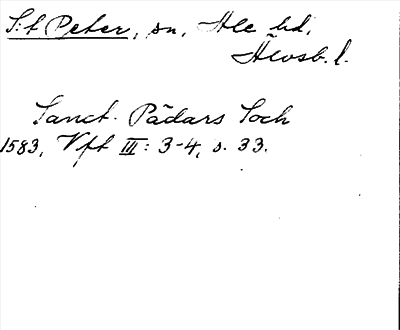 S:t Peter, sn, Ale hd,
Älvsb. l.
Sanct Pädars Soch
1583, Vft III: 3-4, s. 33.